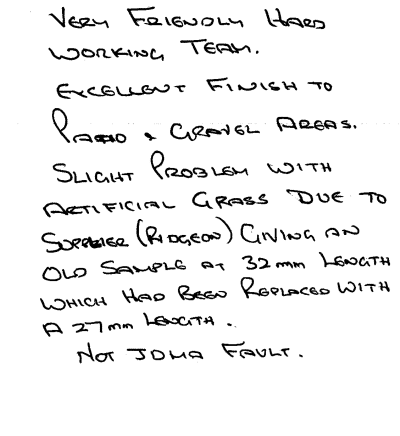 VERY FRIENDLY HARD
WORKING TEAM.
EXCELLENT FINISH TO
PATIO & GRAVEL AREAS.
SLIGHT PROBLEM WITH
ARTIFICIAL GRASS DUE TO
SUPPLIER (RIDGEON) GIVING AN
OLD SAMPLE AT 32mm LENGTH
WHICH HAD BEEN REPLACED WITH
A 27mm LENGTH.
NOT JDMA FAULT.